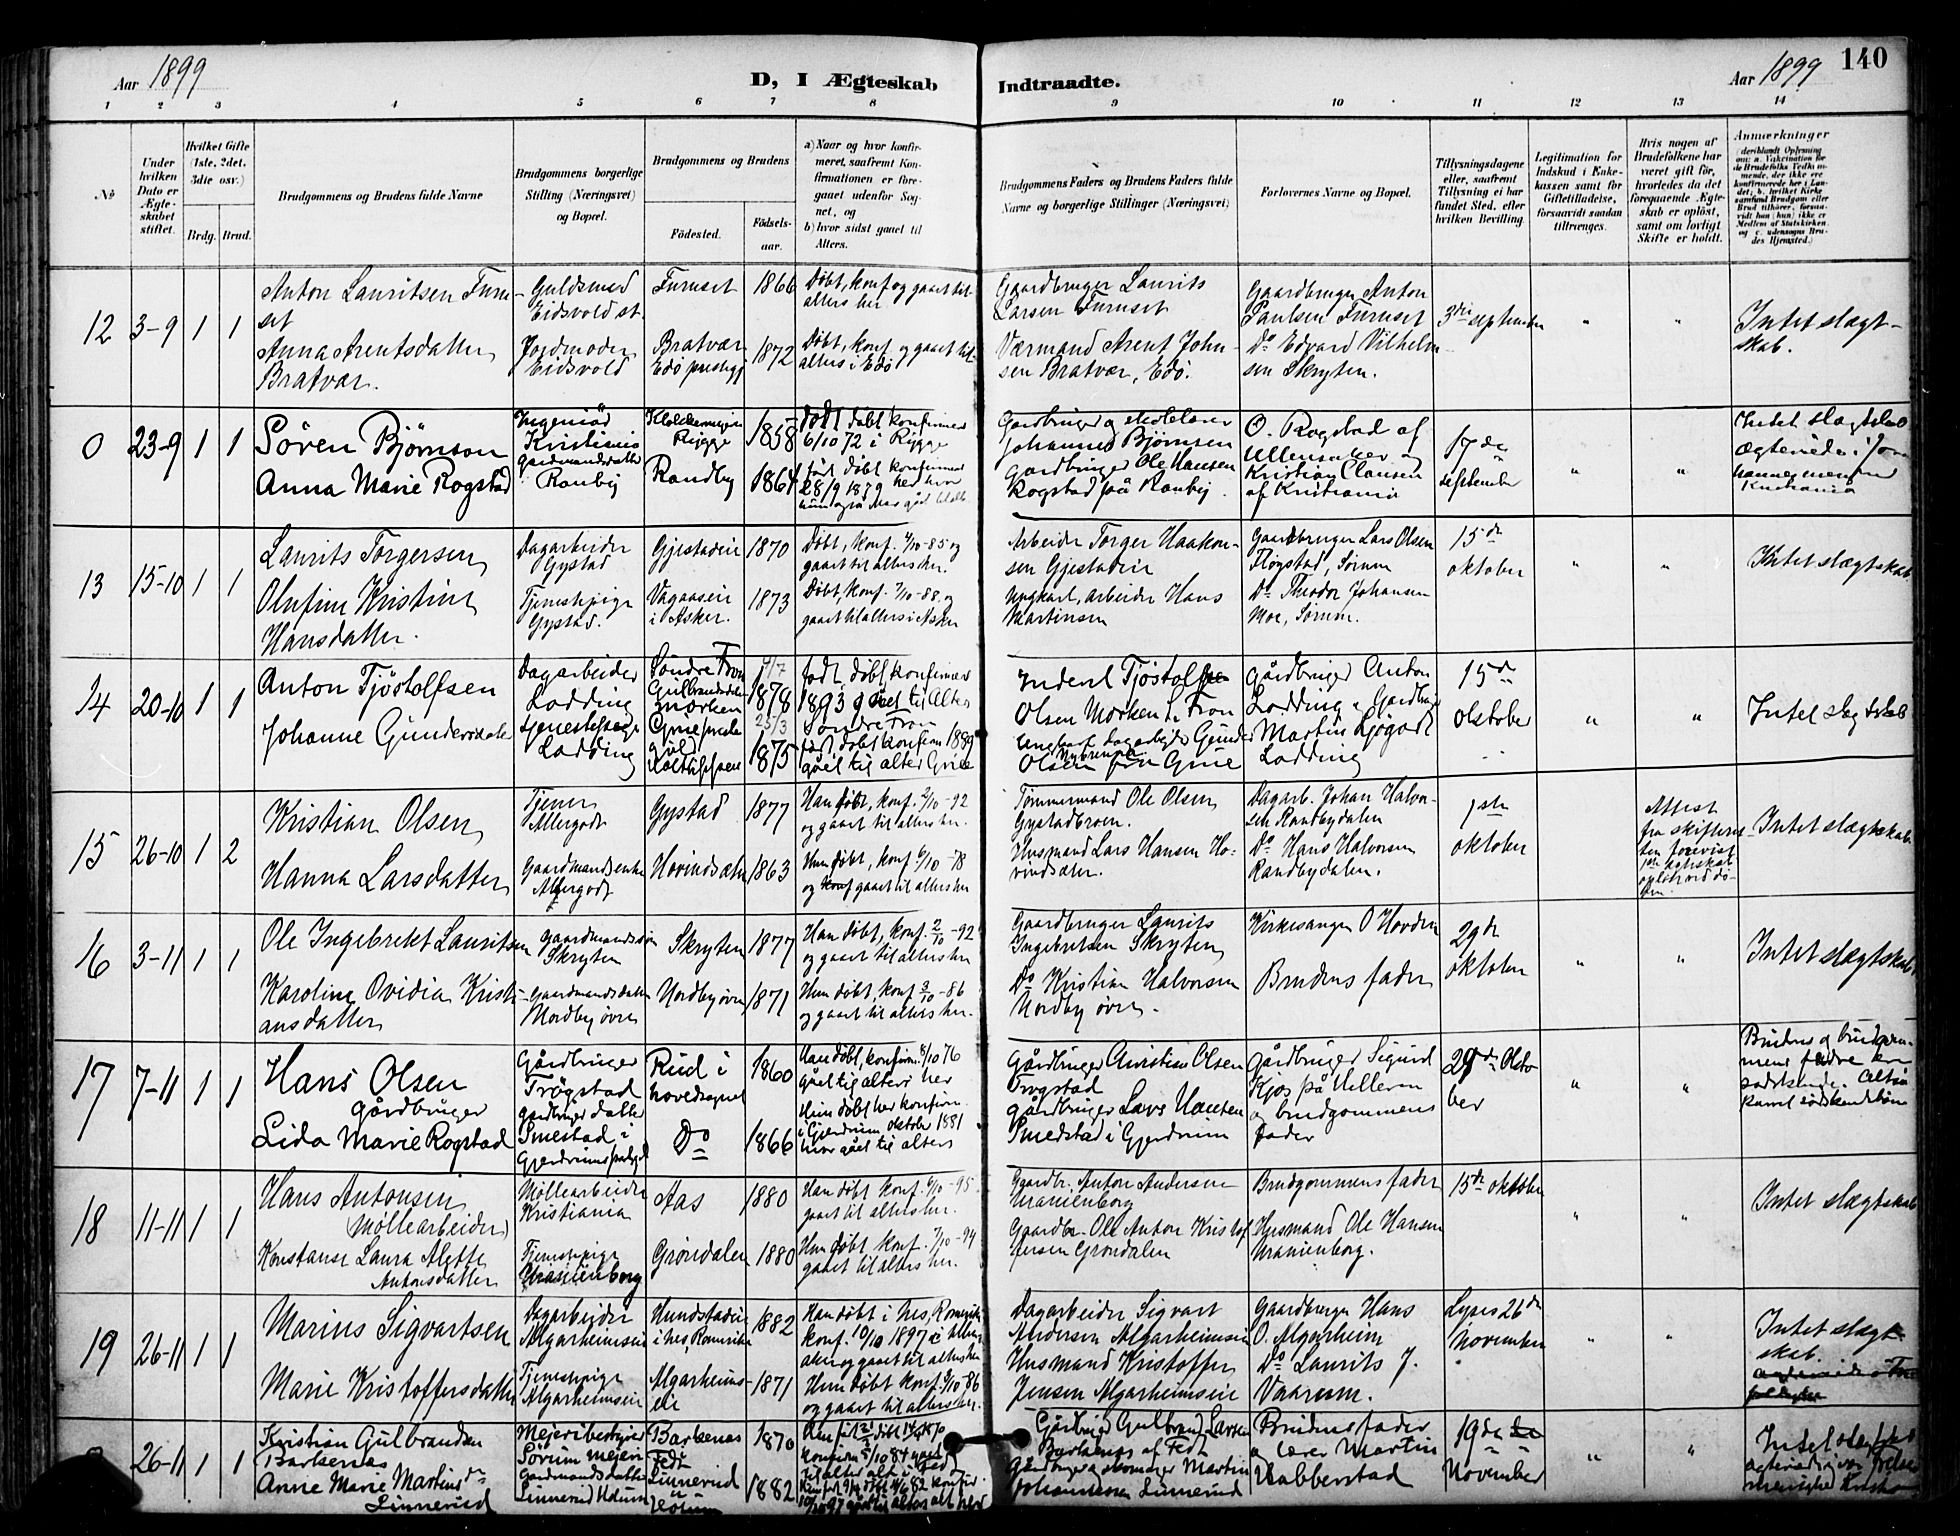 Aar 1899
D, I Ægteskab Indtraadte.
Aar 1899
140
1 2 3 4 5 6 7 8 9 10 11 12 13 14
№
Under hvilken Dato er Ægteskabet stiftet.
Hvilket Gifte (1ste, 2det, 3die osv.)
Brdg. Brud.
Brudgommens og Brudens fulde Navne
Brudgommens borgerlige Stilling (Næringsvei) og Bopæl.
Brudgommens og Brudens
Fødested.
Fødselsaar.
a) Naar og hvor konfirmeret, saafremt Konfirmationen er foregaaet udenfor Sognet, og
b) hvor sidst gaaet til Alters.
Brudgommens Faders og Brudens Faders fulde Navne og borgerlige Stillinger (Næringsvei)
Forlovernes Navne og Bopæl.
Tillysningsdagene eller, saafremt Tillysning ei har fundet Sted, efter hvilken Bevilling.
Legitimation for Indskud i Enkekassen samt for Giftetilladelse, forsaavidt saadan tiltrænges.
Hvis nogen af Brudefolkene har været gift før, hvorledes da det foregaaende Ægteskab er opløst, samt om lovligt Skifte er holdt.
Anmærkninger
12 3-9 1 1
Anton Lauritsen Furuset
Guldsmed Eidsvold st.
Furuset 1866
Døbt, konf og gaaet til alters her
Gaardbruger Laurits Larsen Furuset
Gaardbruger Anton Paulsen Furuset
3die september
Intet slægtskab.
Anna Arentsdatter Bratvær.
Jordmoder Eidsvold
Bratvær Edø prestegj 1872
Døbt, konf og gaaet til alters i Edø
Værmand Arent Johnsen Bratvær, Edø.
Do Edvard Vilhelmsen Skryten.
0 23-9 1 1
Sören Björnson
Ingeniør Kristiania
Rygge 1858
født døbt konfirmer 6/10 72 i Rygge
Gardbruger og skolelærer Johannes Björnsen
O. Rogstad af Ullensaker og Kristian Clausen af Kristiania
17de september
Anna Marie Rogstad
gardmandsdatter Ranby
Randby 1864
født døbt konfirmert 28/9 1879 her
Gardbruger Ole Hansen Rogstad på Ranby.
13 15-10 1 1
Laurits Torgersen
Dagarbeider Gystad
Gjestadeie 1870
Døbt, konf. 4/10-85 og gaaet til alters her.
Arbeider Torger Haakonsen Gjestadeie
Gaardbruger Lars Olsen Fløgstad, Sørum
15de oktober
Intet slægtskab.
Olufine Kristine Hansdatter.
Tjenestepige Gystad.
Vagaaseie i Asker. 1873
Døbt, konf. 7/10-88. og gaaet til alters i Asker
Ungkarl, arbeider Hans Martinsen
Do Theodor Johansen Moe, Sørum.
14 20-10 1 1
Anton Tjöstolfsen
Dagarbeider Lodding
Söndre Fron Gulbrandsdalen 1878
født, døbt, konfirmer 1893 og gået til Alter Söndre Fron
Inderst Tjöstolf Olsen Morken S. Fron
Gårdbruger Anton Lodding
15de oktober
Intet slegtskab
Johanne Gundersdatter
tjenestepige Lodding
25/3 1875
født døbt konfirm 1889 gået til alter Grue
Ungkarl Dagarbejder Gunder Olsen fra Grue
15 26-10 1 2
Kristian Olsen
Tjener Allergodt
Gystad 1877
Han døbt, konf. 2/10-92 og gaaet til alters her.
Tømmermand Ole Olsen Gystadbroen.
Dagarb. Johan Halvorsen Randbydalen
1ste oktober
Attest fra skifteretten
Intet slægtskab.
Hanna Larsdatter
Gaardmandsenke Algergodt
Hovindsæter 1863
Hun døbt, konf 6/10-78 og gaaet til alters her
Husmand Lars Hansen Hovindsæter.
Do Hans Halvorsen Randbydalen.
16 3-11 1 1
Ole Ingebrekt Lauritsen
Gaardmandssøn Skryten
Skryten 1877
Han døbt, konf. 2/10-92 og gaaet til alters her
Gaardbruger Laurits Ingebretsen Skryten
Kirkesanger O Hovden
29de oktober
Intet slægtskab.
Karoline Ovidia Kristiansdatter
Gaardmandsdatter Nordby øvre
Nordby øvre 1871
Hun døbt, konf 3/10-86 og gaaet til alters her.
Do Kristian Halvorsen Nordby øvre.
Brudens fader
17 7-11 1 1
Hans Olsen gårdbruger
Gårdbruger Trögstad
Rud i hovedsognet 1860
Han døbt, konfirm. 8/10 76 gået til alters her
Gårdbruger Christian Olsen Trogstad
Gårdbruger Sigurd Kjos på Helleren og brudgommens fader
29de Oktober
Lida Marie Rogstad
gardbruger datter Smestad i
Do 1866
Hun døbt her konfirm. i Gjerdrum oktober 1881 hvor gået til alters
gårdbruger Lars Hansen Smedstad i Gjerdrum
18 11-11 1 1
Hans Antonsen (Møllearbeider)
Møllearbeider Kristiania
Aas 1880
Han døbt konf. 6/10-95. gaaet til alters her.
Gaardbr. Anton Andersen Uranienborg
Brudgommens fader
15de oktober
Intet slægtskab
Konstanse Laura Alette Antonsdatter
Tjenestepige Uranienborg
Grøndalen 1880
Hun døbt konf. 7/10-94 gaaet til alters her.
Gaardbr. Ole Anton Kristoffersen Grøndalen
Husmand Ole Hansen Uranienborg.
19 26-11 1 1
Marius Sigvartsen
Dagarbeider Algarheimseie
Hundstadeie i Nes, Romerike 1882
Han døbt i Nes, Romerike konf. 10/10 1897 og gaaet til alters her
Dagarbeider Sigvart Andersen Algarheimseie
Gaardbruger Hans O. Algarheim
Lyses 26de november
Intet slægtskab.
Marie Kristoffersdatter
Tjenestepige Algarheimseie
Algarheimseie 1871
Hun døbt konf. 3/10-86 og gaaet til alters her.
Husmand Kristoffer Jensen Algarheimseie
Do Laurits J. Vaarum.
26-11 1 1
Kristian Gulbrandsen Barkenæs
Mejeribestyrer Sørum mejeri
Barkenæs Fedt 1870
Gårdbruger Gulbrand Larsen Barkenæs af Fedt
Brudens fader og lærer Martin Habberstad
19de November
Anne Marie Martinsdr Linnerud
Gardmandsdatter Linnerud
Linnerud 1882
Martin Johannesen Linnerud